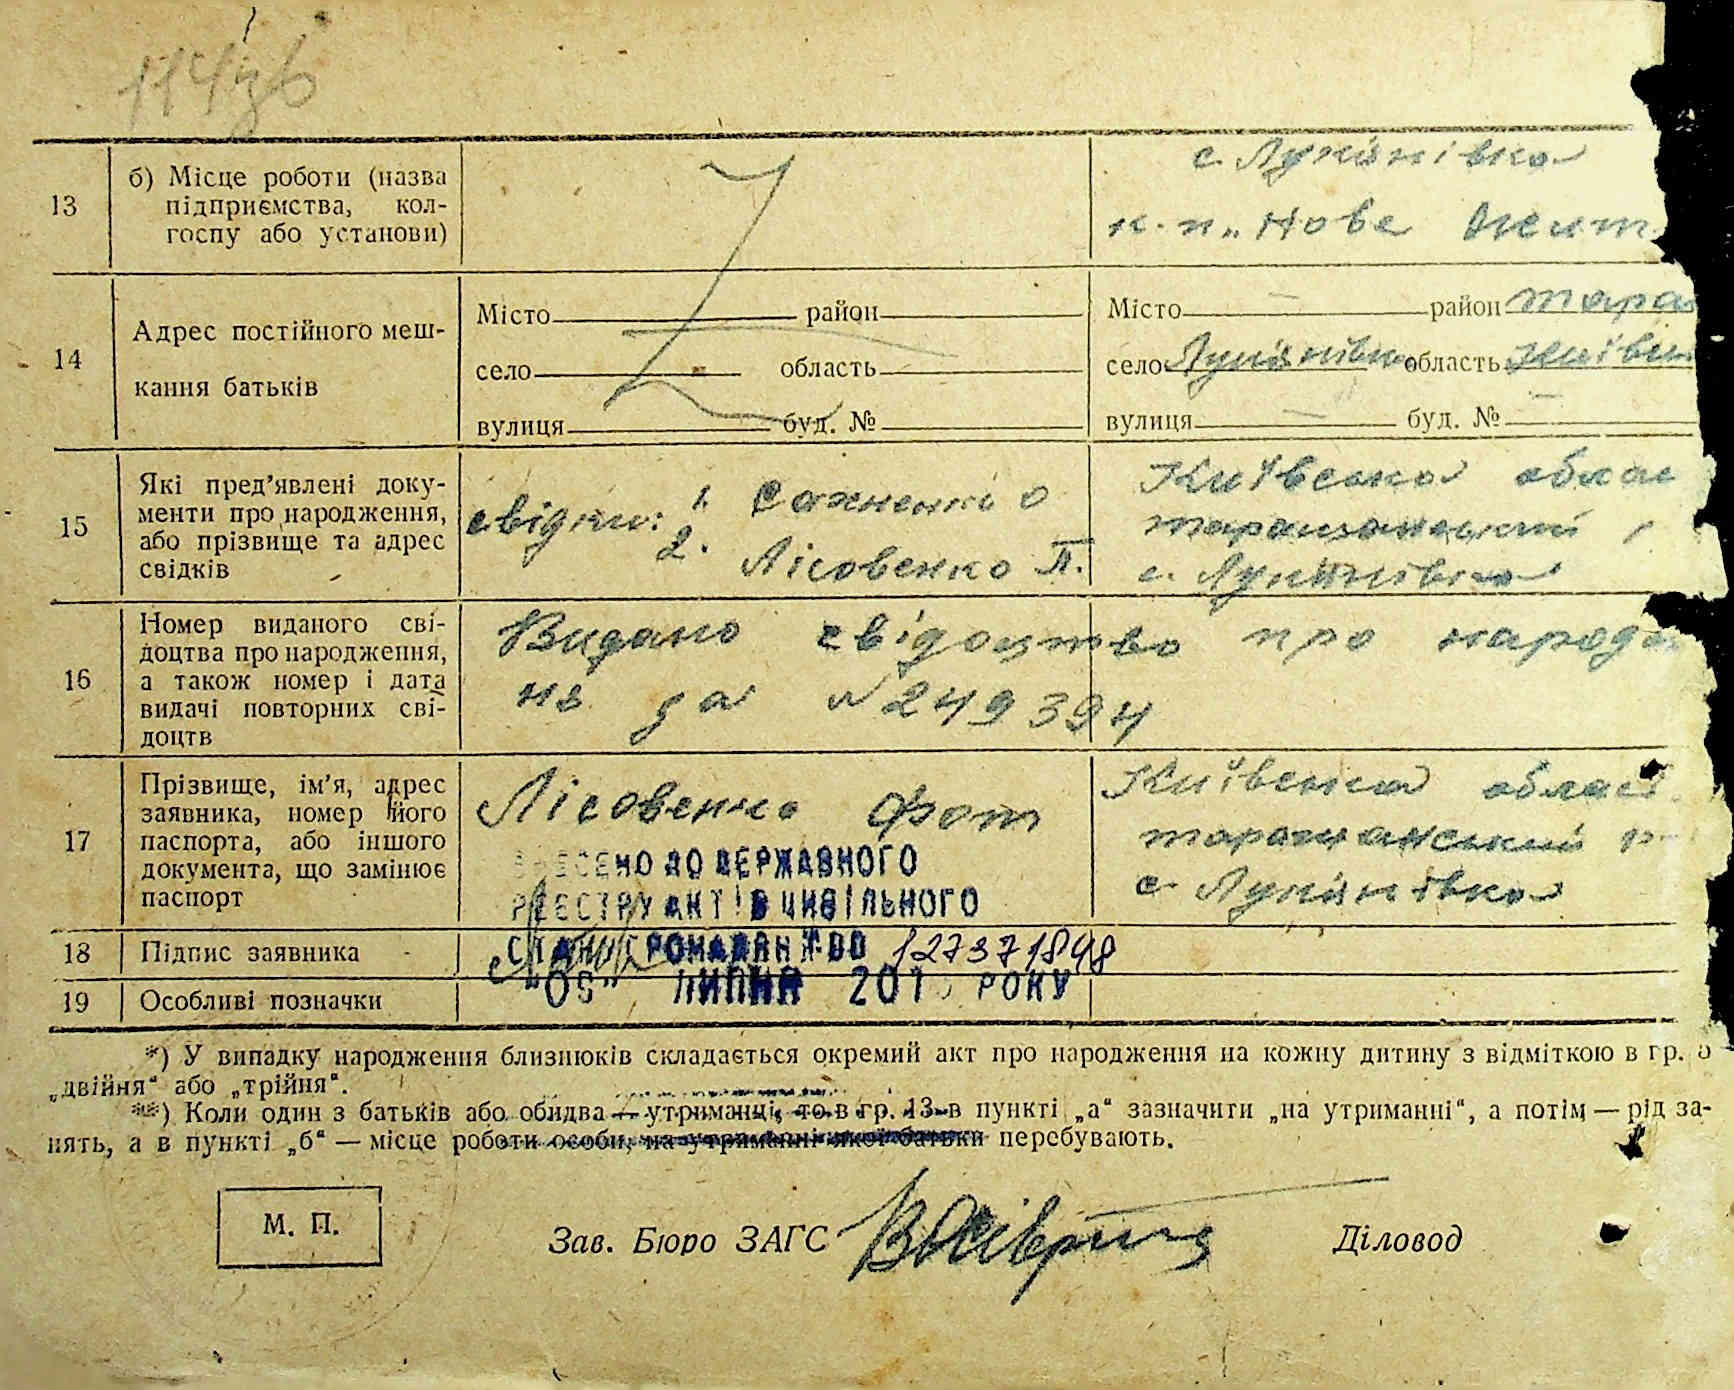 13
б) Місце роботи (назва
підприємства, кол-
госпу або установи)
с. Лук'янівка
к. п. „Нове
14
Адрес постійного меш-
кання батьків
Місто район
село область
вулиця буд. №
Місто — район Тара
село Лук'янівка область Київсь
вулиця — буд. № —
15
Які пред'явлені доку-
менти про народження,
або прізвище та адрес
свідків
свідки: 1. Сахненко О
2. Лісовенко П.
Київська облас
таращанський
с. Лук'янівка
16
Номер виданого сві-
доцтва про народження,
а також номер і дата
видачі повторних сві-
доцтв
Видано свідоцтво про народж
ня за № 249394
17
Прізвище, ім'я, адрес
заявника, номер його
паспорта, або іншого
документа, що замінює
паспорт
Лісовенко
Київська област
таращанський р
с. Лук'янівка
ВНЕСЕНО ДО ДЕРЖАВНОГО
РЕЄСТРУ АКТІВ ЦИВІЛЬНОГО
СТАНУ ГРОМАДЯН ЗА № 127371848
ЛИПНЯ 201 РОКУ
18
Підпис заявника
19
Особливі позначки
*) У випадку народження близнюків складається окремий акт про народження на кожну дитину з відміткою в гр. 5
„двійня“ або „трійня“.
**) Коли один з батьків або обидва — утриманці, то в гр. 13 в пункті „а“ зазначити „на утриманні“, а потім — рід за-
нять, а в пункті „б“ — місце роботи особи, на утриманні якої батьки перебувають.
М. П.
Зав. Бюро ЗАГС
Діловод